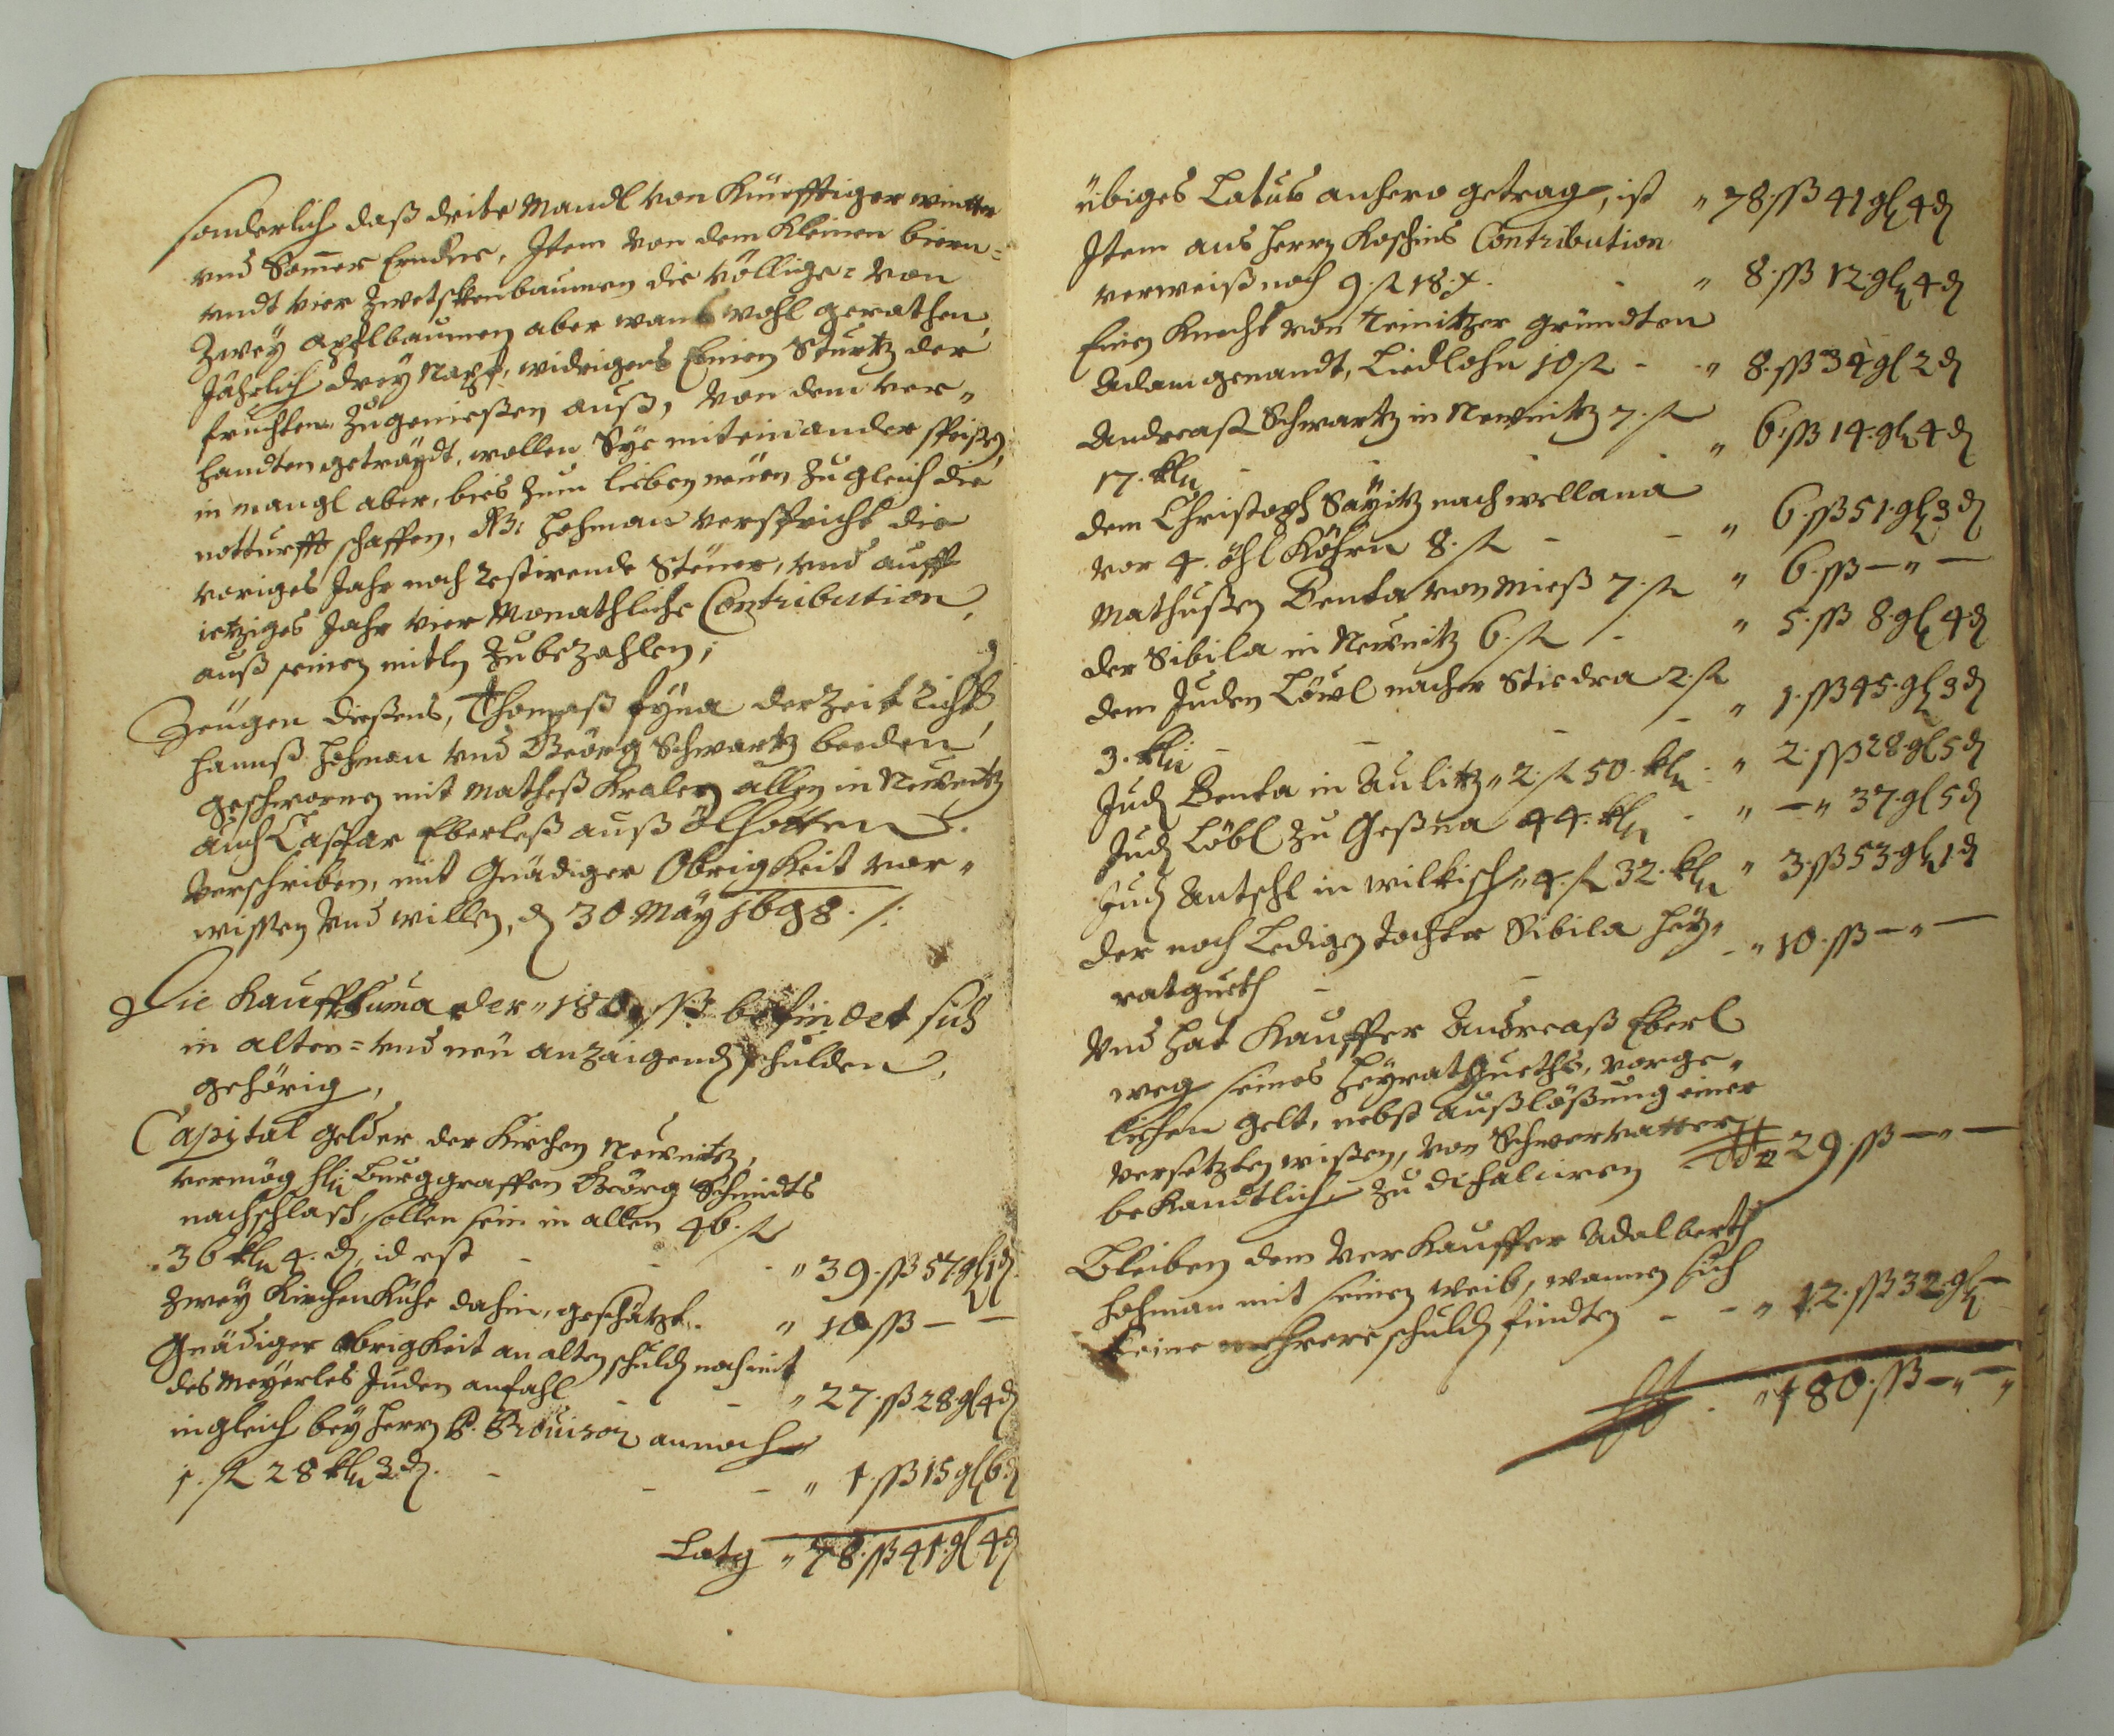 sonderlich daß drite Mandl von Künfftiger winter
und Somer Erndte, Item von dem Kleinen biern=
undt vier Zwetschkenbaumen die völlige= von
Zwey apflbaumen aber wans wohl gerathen,
Jährlich drey Napf, widrigens Einen Sturtz der
fruchten Zugenießen auß, von dem ver„
handten geträydt, wollen Sye miteinander speißen,
in mangl aber, bies zum lieben neüen zugleich die
notturfft schaffen, NB: Hohman verspricht die
voriges Jahr noch Restirende Steüer, und auff
ietziges Jahr vier Monathliche Contribution,
auß seinen mitln Zubezahlen,
Zeugen dießens, Thomaß fyna der Zeit Richter,
Hannß Hohman und Geörg Schwartz beeden
geschwornen mit Matheß Kralen allen in Neunitz
auch Caspar Eberleß auß Ölhotten.
Verschriben, mit Gnädiger Obrigkeit vor„
wissen und willen, d 30 May 1698 ./.
Die Kauffsuma der „ 180 ßß befindet sich
in alten= und neu anzaigend schulden
gehörig,
Capital gelder der Kirchen Neunitz,
vermög hln Burggraffen Geörg Schmidts
nachschlach, sollen sein in allen 46. fl
36 kln 4. d, id est - - „ 39. ßß 57 gl 1 d
Zwey Kirchen Kühe dahin, geschätzt. „ 10 ßß — —
Gnädiger obrigkeit an alten schuld noch mit
des Meyerles Juden anfahl - - „ 27. ßß 28 gl 4 d
ingleich bey Herrn P. annoch
1. fl 28 kln 3 d. - - - „ 1 ßß 15 gl 6 d
Latg „ 78. ßß 41. gl 4 d
übiges Latus anhero getrag, ist „ 78. ßß 41 gl 4 d
Item aus Herrn Koschins Contribution
verweiß noch 9. fl 18. x. - „ 8. ßß 12. gl 4 d
Einen Knecht von Teinitzer gründten
Adam genandt, Liedlohn 10 fl - „ 8. ßß 34 gl 2 d
Andreaß Schwartz in Neunitz 7. fl
17. kln - - - „ 6. ßß 14. gl 4 d
dem Christoph Sayitz nach wellana
vor 4. öhl Köhrn 8. fl - - „ 6. ßß 51. gl 3 d
Mathußen Benta von Mieß 7. fl „ 6. ßß — „ —
der Sibila in Neunitz 6. fl - „ 5. ßß 8. gl 4 d
dem Juden Löwl nacher Stiedra 2. fl
3. kln - - - - „ 1. ßß 45. gl 3 d
Jud Benta in Aulitz „ 2. fl 50. kln - „ 2. ßß 28. gl 5 d
Jud Löbl zu Geßna 44. kln - „ — „ 37. gl 5 d
Jud Antschl in wilkisch „ 4. fl 32. kln „ 3. ßß 53 gl 1. d
der noch Ledigen tochter Sibila Hey„
rathgueth - - - „ 10. ßß — „ —
Und hat Kauffer Andreaß Eberl
weg seines Heyrathgueths, vorge„
lichen gelt, nebst außlößung einer
versetzten wießen, von Schwervatter
bekandtlich zu difalciren „ 29. ßß — „ —
Bleiben dem Verkauffer Adalberth
Hohman mit seinen weib, wannen sich
Keine mehrere schuld findten - - „ 12. ßß 32. gl —
„ 180. ßß — „ — „